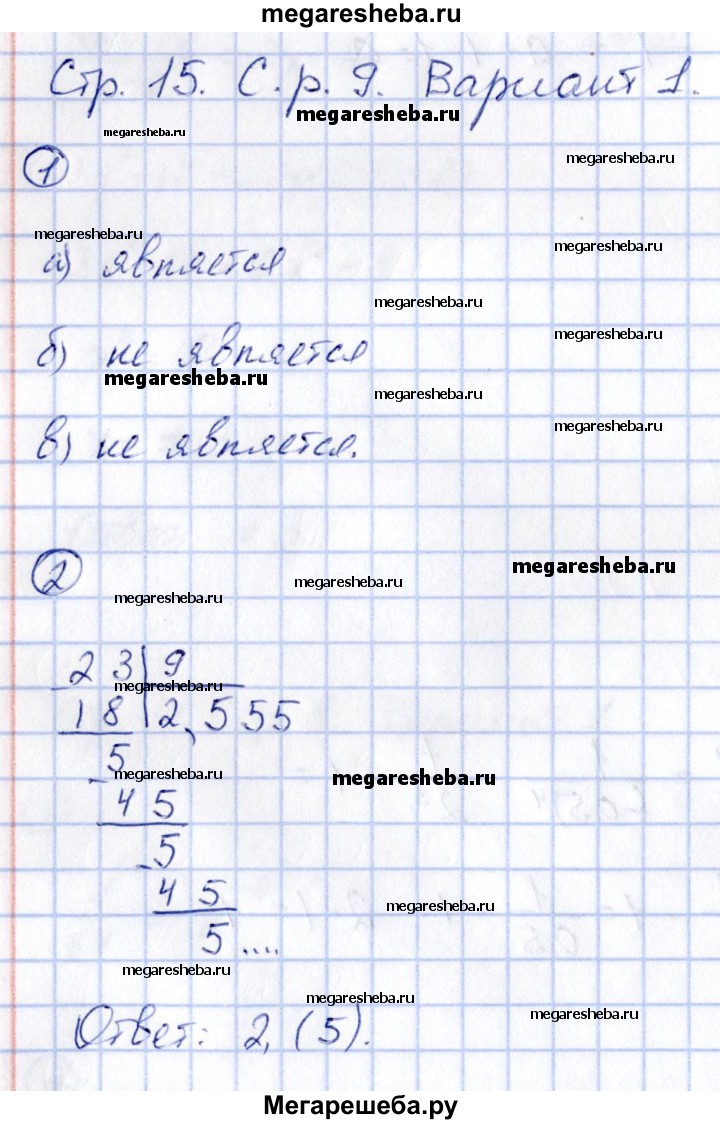 megaresheba.ru
Стр. 15. С. р. 9. Вариант 1.
megaresheba.ru
megaresheba.ru
1
megaresheba.ru
megaresheba.ru
megaresheba.ru
а) является
megaresheba.ru
megaresheba.ru
б) не является
megaresheba.ru
megaresheba.ru
megaresheba.ru
в) не является.
megaresheba.ru
2
megaresheba.ru
megaresheba.ru
23 | 9
megaresheba.ru
18 | 2,555
5
megaresheba.ru
megaresheba.ru
45
5
45
megaresheba.ru
5....
megaresheba.ru
megaresheba.ru
megaresheba.ru
Ответ: 2,(5).
Мегарешеба.ру